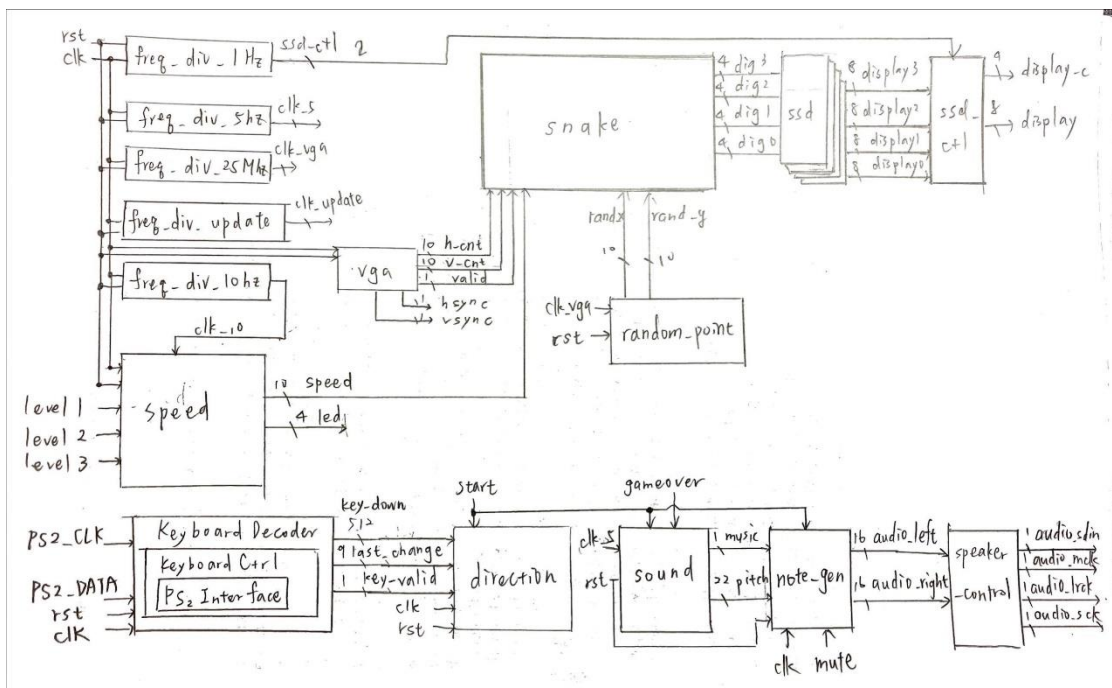 rst
clk
freq_div_1Hz
ssd_ctl 2
freq_div_5hz
clk_5
freq_div_25Mhz
clk_vga
freq_div_update
clk_update
freq_div_10hz
clk_10
vga
10 h_cnt
10 v_cnt
1 valid
1 hsync
1 vsync
snake
4 dig3
4 dig2
4 dig1
4 dig0
ssd
8 display3
8 display2
8 display1
8 display0
ssd_ctl
4 display_c
8 display
randx
rand_y
10
10
clk_vga
rst
random_point
level 1
level 2
level 3
speed
10 speed
4 led
PS2_CLK
PS2_DATA
rst
clk
Keyboard Decoder
Keyboard Ctrl
PS2 Interface
key_down
512
9 last_change
1 key_valid
clk
rst
start
direction
gameover
clk_5
rst
sound
1 music
22 pitch
note_gen
clk mute
16 audio_left
16 audio_right
speaker
_control
1 audio_sdin
1 audio_mclk
1 audio_lrck
1 audio_sck